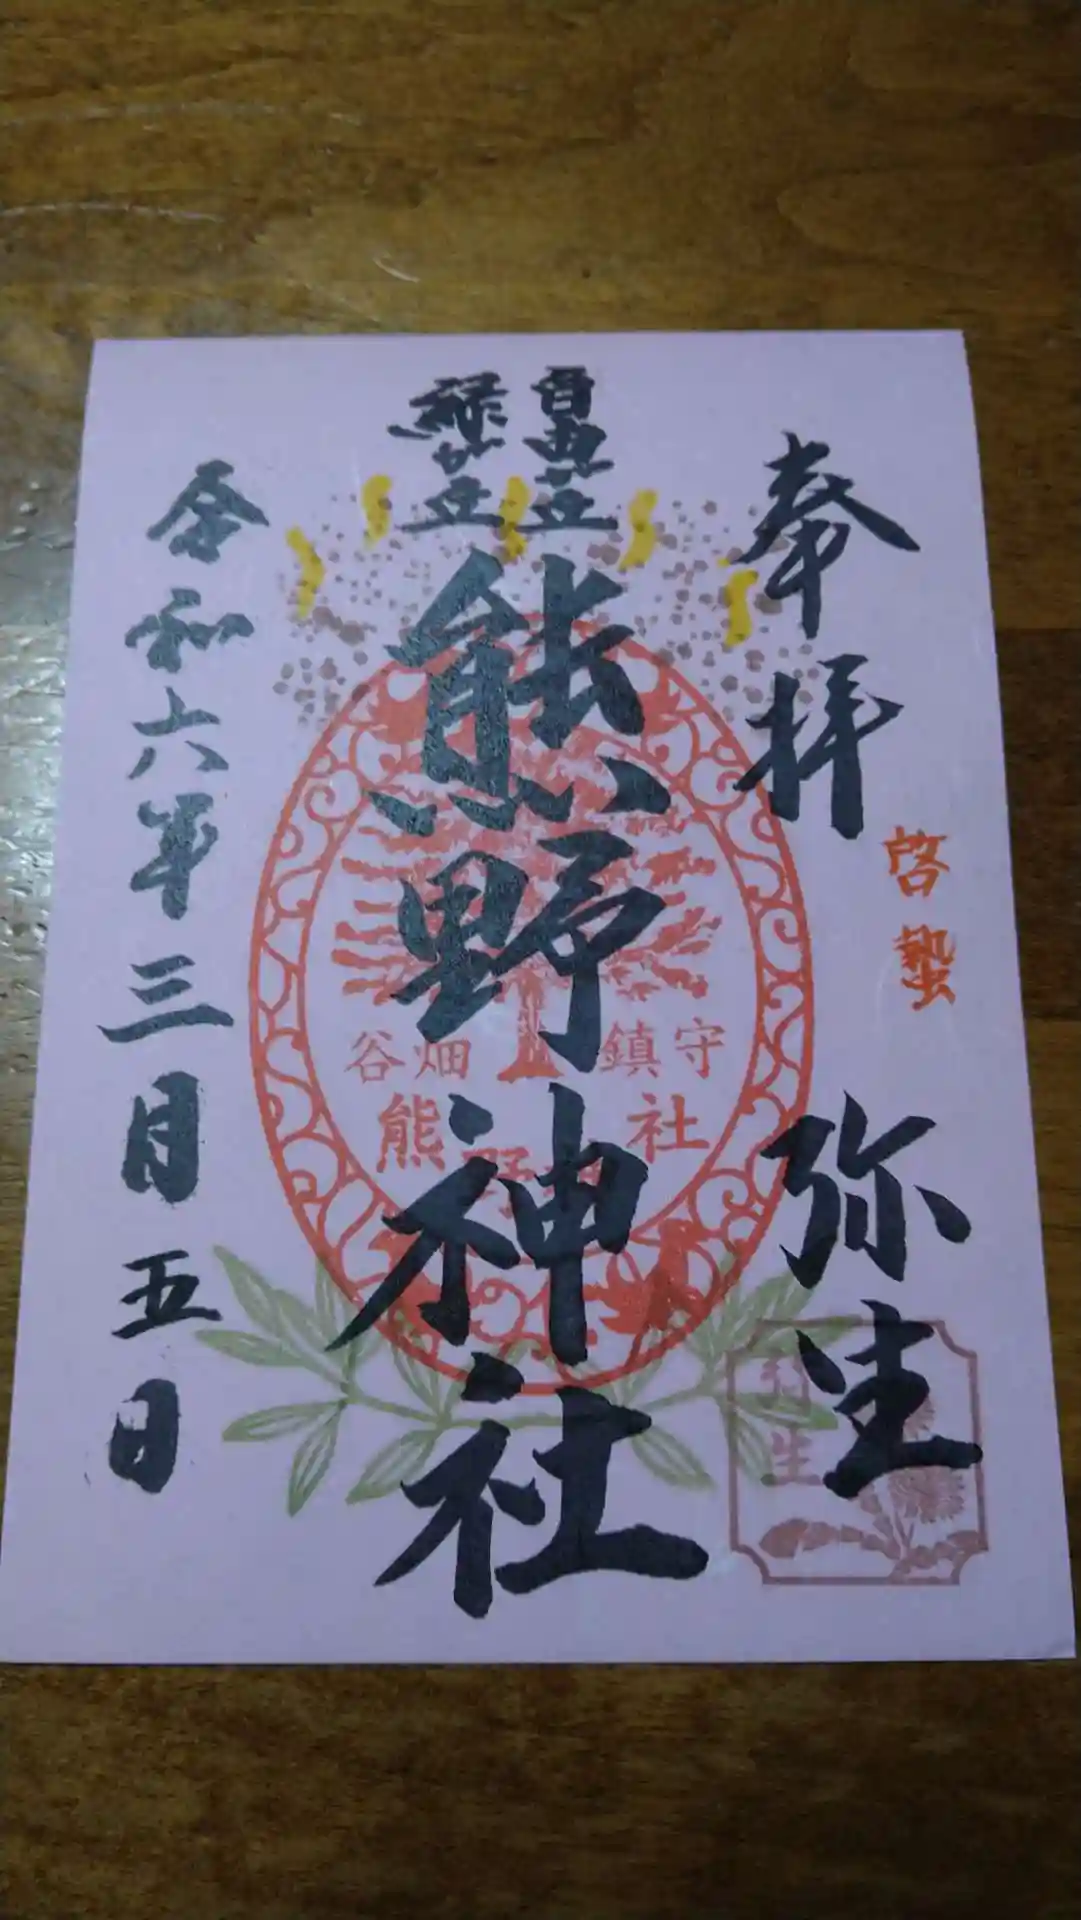 啓蟄
奉拝 弥生
弥生
熊野神社
谷畑 鎮守
熊野神社
令和六年三月五日